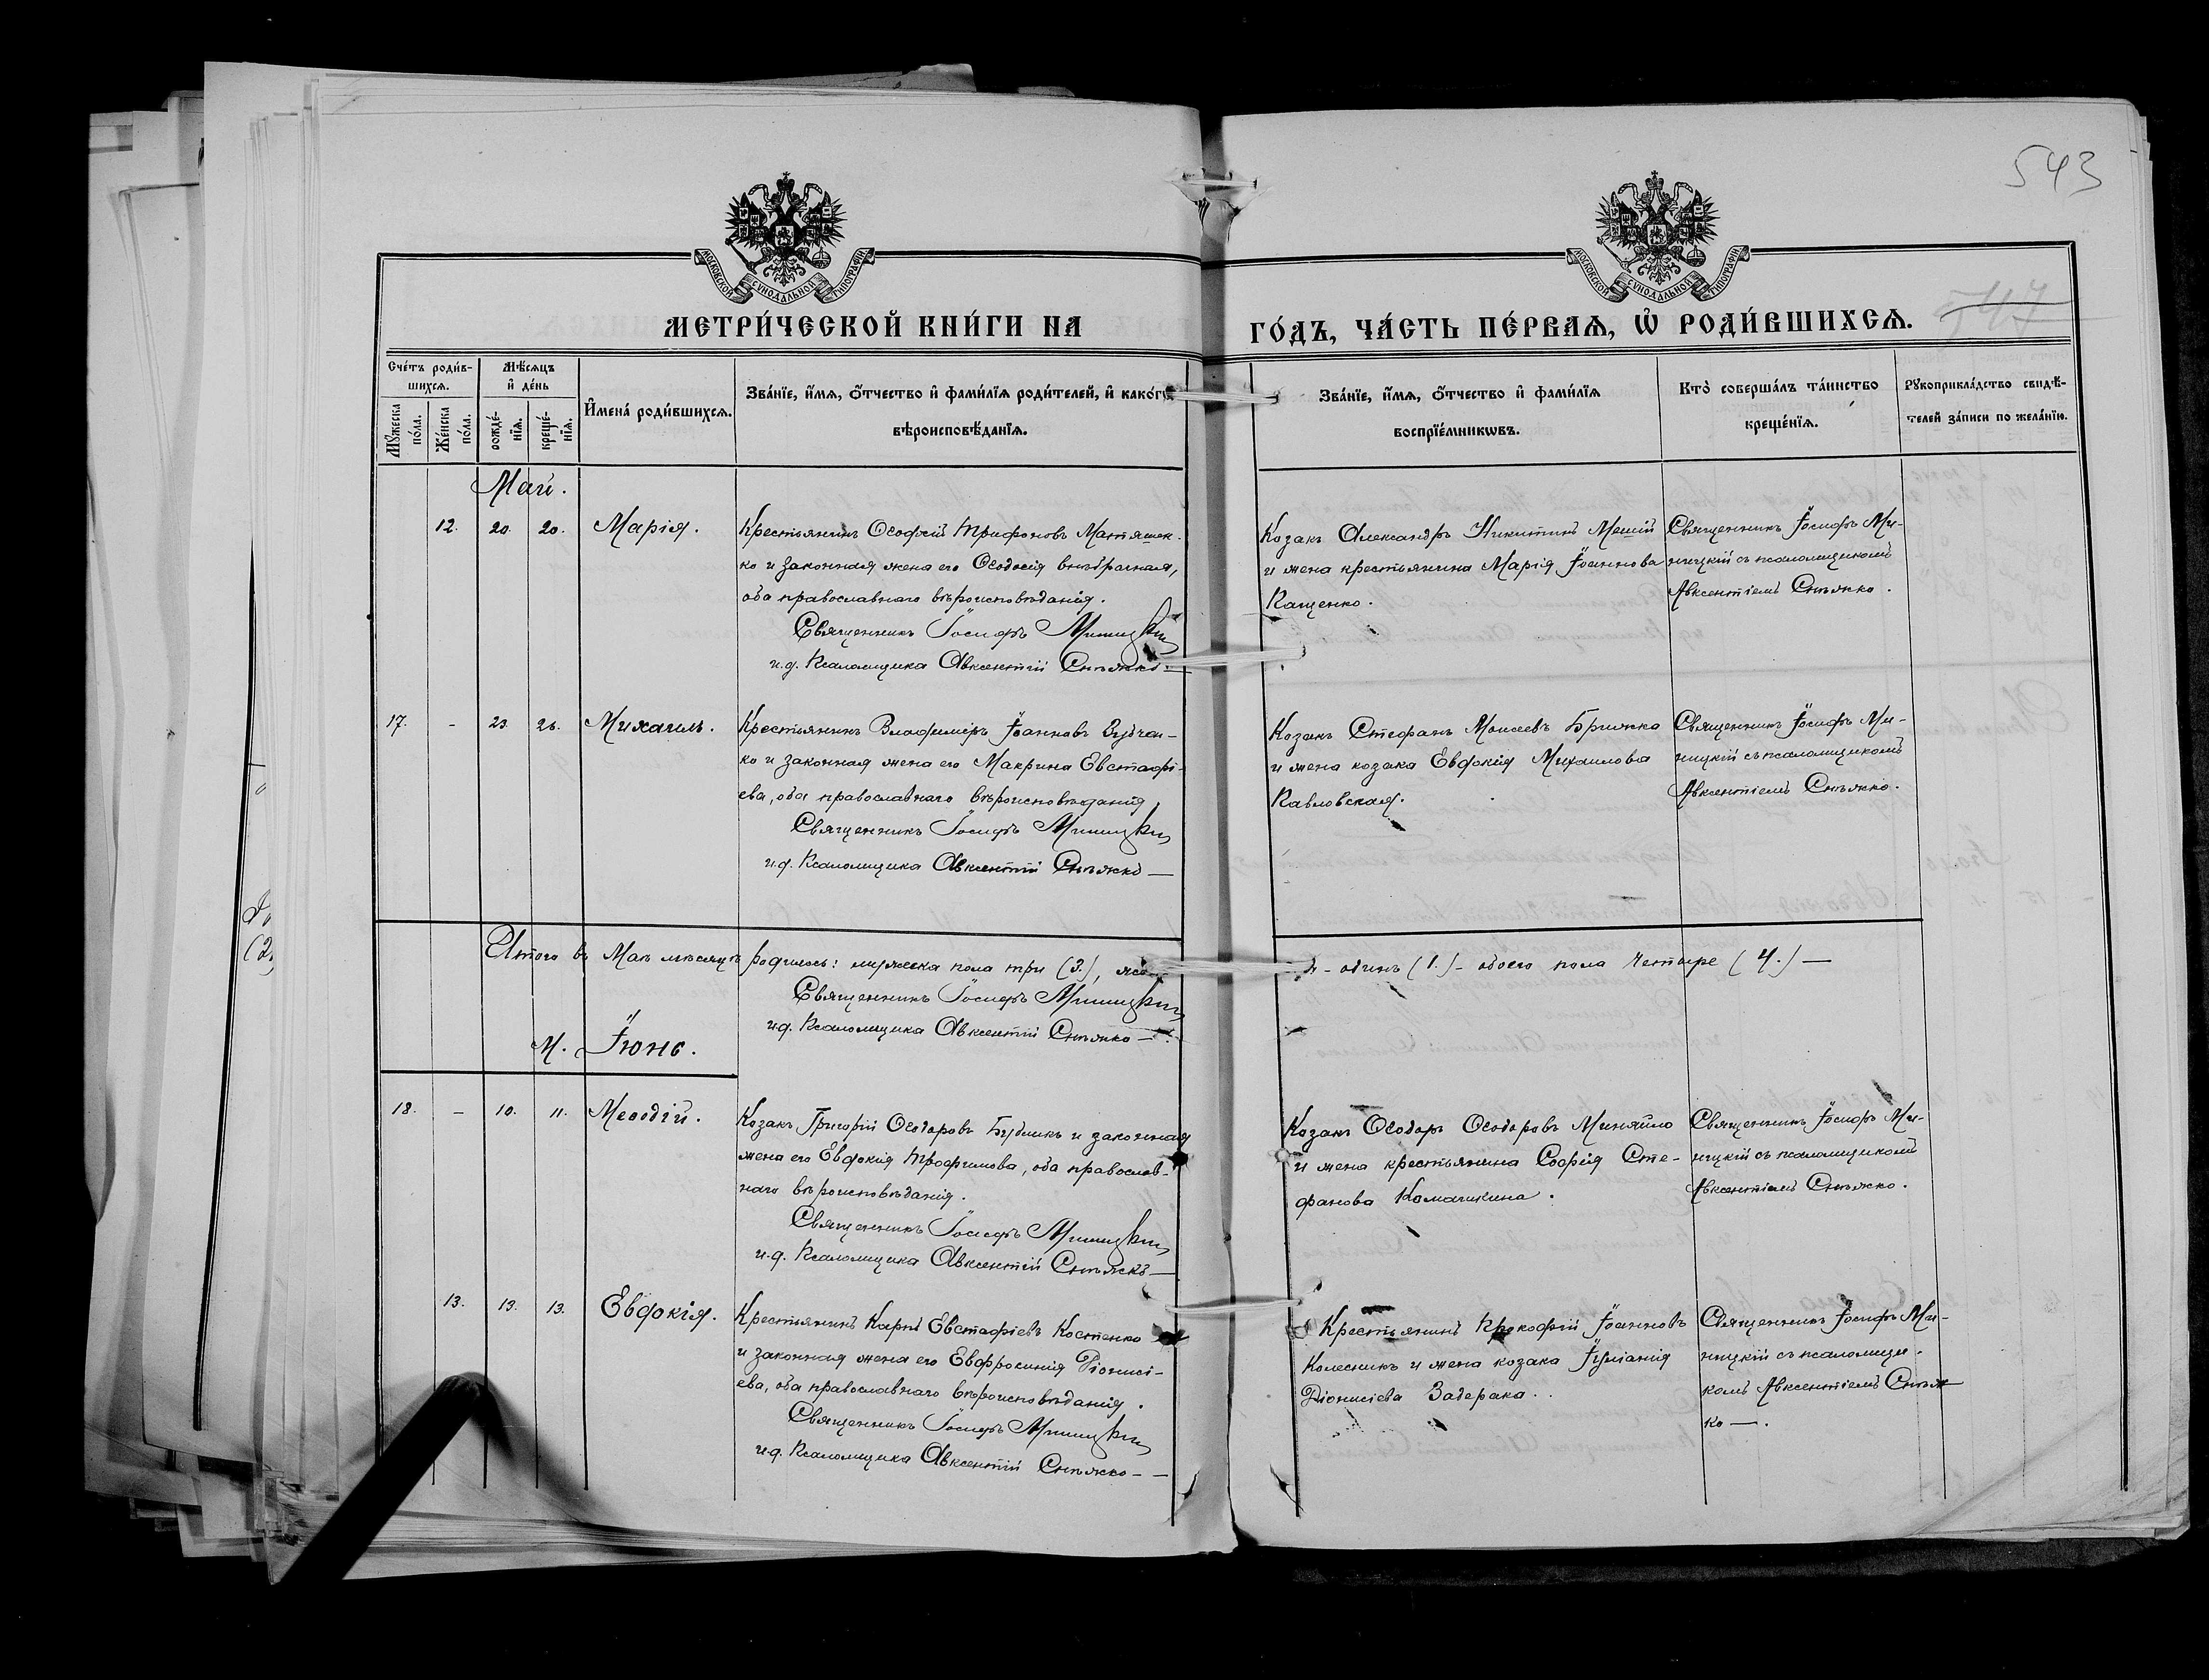 543
547
МОСКОВСКОЙ СУНОДАЛЬНОЙ ТИПОГРАФІИ
МОСКОВСКОЙ СУНОДАЛЬНОЙ ТИПОГРАФІИ
МЕТРИ́ЧЕСКОЙ КНИ́ГИ НА
ГО́ДЪ, ЧА́СТЬ ПЕ́РВАѦ, Ѽ РОДИ́ВШИХСѦ.
Сче́тъ роди́в-
шихсѧ.
Мꙋ́жеска по́ла.
Же́нска по́ла.
Мѣ́сѧцъ
и҆ де́нь
рожде́нїѧ.
креще́нїѧ.
И҆мена́ роди́вшихсѧ.
Зва́нїе, и҆́мѧ, ѻ҆́тчество и҆ фами́лїѧ роди́телей, и҆ како́гѡ
вѣроисповѣ́данїѧ.
Зва́нїе, и҆́мѧ, ѻ҆́тчество и҆ фами́лїѧ
воспрїе́мникѡвъ.
Кто̀ соверша́лъ та́инство
креще́нїѧ.
Рꙋкоприкла́дство свидѣ́-
телей за́писи по жела́нїю.
Май.
12. 20. 20. Марія.
Крестьянинъ Ѳеофкій Трифоновъ Матяшек-
ко и законная жена его Ѳеодосія внѣбрачная,
оба православнаго вѣроисповѣданія.
Священникъ Іосифъ Миницкій
и.д. Псаломщика Авксентій Снѣжко
Козакъ Александръ Никитинъ Мешій
и жена крестьянина Марія Іоаннова
Кащенко.
Священникъ Іосифъ Ми-
ницкій съ псаломщикомъ
Авксентіемъ Снѣжко.
17. - 23. 26. Михаилъ.
Крестьянинъ Владиміръ Іоанновъ Зубчен-
ко и законная жена его Макрина Евстафі-
ева, оба православнаго вѣроисповѣданія,
Священникъ Іосифъ Миницкій
и.д. Псаломщика Авксентій Снѣжко —
Козакъ Стефанъ Моисеевъ Брижко
и жена козака Евдокія Михаилова
Павловская.
Священникъ Іосифъ Ми-
ницкій съ псаломщикомъ
Авксентіемъ Снѣжко.
Итого въ Маѣ мѣсяцѣ родилось: мужеска пола три (3.),
- одинъ (1.) - обоего пола четыре (4.) —
Священникъ Іосифъ Миницкій
и.д. Псаломщика Авксентій Снѣжко —
М. Іюнь.
18. - 10. 11. Меѳодій.
Козакъ Григорій Ѳеодоровъ Бубликъ и законная
жена его Евдокія Трофимова, оба православ-
наго вѣроисповѣданія.
Священникъ Іосифъ Миницкій
и.д. Псаломщика Авксентій Снѣжко —
Козакъ Ѳеодоръ Ѳеодоровъ Миняйло
и жена крестьянина Софія Сте-
фанова Комашкина.
Священникъ Іосифъ Ми-
ницкій съ псаломщикомъ
Авксентіемъ Снѣжко.
13. 13. 13. Евдокія.
Крестьянинъ Карпъ Евстафіевъ Костенко
и законная жена его Евфросинія Діонисі-
ева, оба православнаго вѣроисповѣданія.
Священникъ Іосифъ Миницкій
и.д. Псаломщика Авксентій Снѣжко - —
Крестьянинъ Прокофій Іоанновъ
Колесникъ и жена козака Іуліанія
Діонисіева Задерака.
Священникъ Іосифъ Ми-
ницкій съ псаломщи-
комъ Авксентіемъ Снѣж-
ко —.